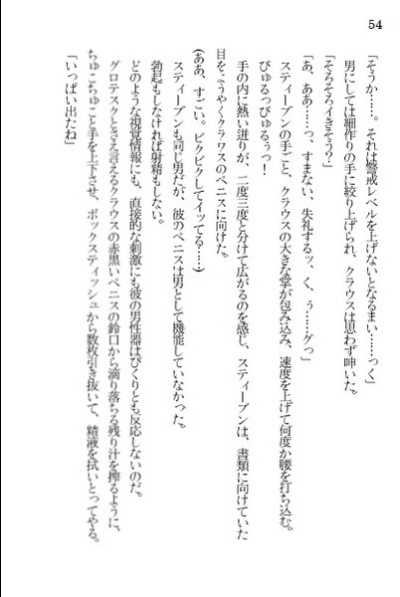 54
「そうか……。それは警戒レベルを上げないとなるまい……っく」
男にしては細作りの手に絞り上げられ、クラウスは思わず呻いた。
「そろそろイきそう？」
「あ、ああ……っ、すまない、失礼するッ、く、ぅ……グっ」
スティーブンの手ごと、クラウスの大きな掌が包み込み、速度を上げて何度か腰を打ち込む。
びゅるっびゅるぅっ！
手の内に熱い迸りが、二度三度と分けて広がるのを感じ、スティーブンは、書類に向けていた
目をようやくクラウスのペニスに向けた。
（ああ、すごい。ビクビクしてイッてる……）
スティーブンも同じ男だが、彼のペニスは男として機能していなかった。
勃起もしなければ射精もしない。
どのような視覚情報にも、直接的な刺激にも彼の男性器はぴくりとも反応しないのだ。
グロテスクとさえ言えるクラウスの赤黒いペニスの鈴口から滴り落ちる残り汁を搾るように、
ちゅこちゅこと手を上下させ、ボックスティッシュから数枚引き抜いて、精液を拭いとってやる。
「いっぱい出たね」